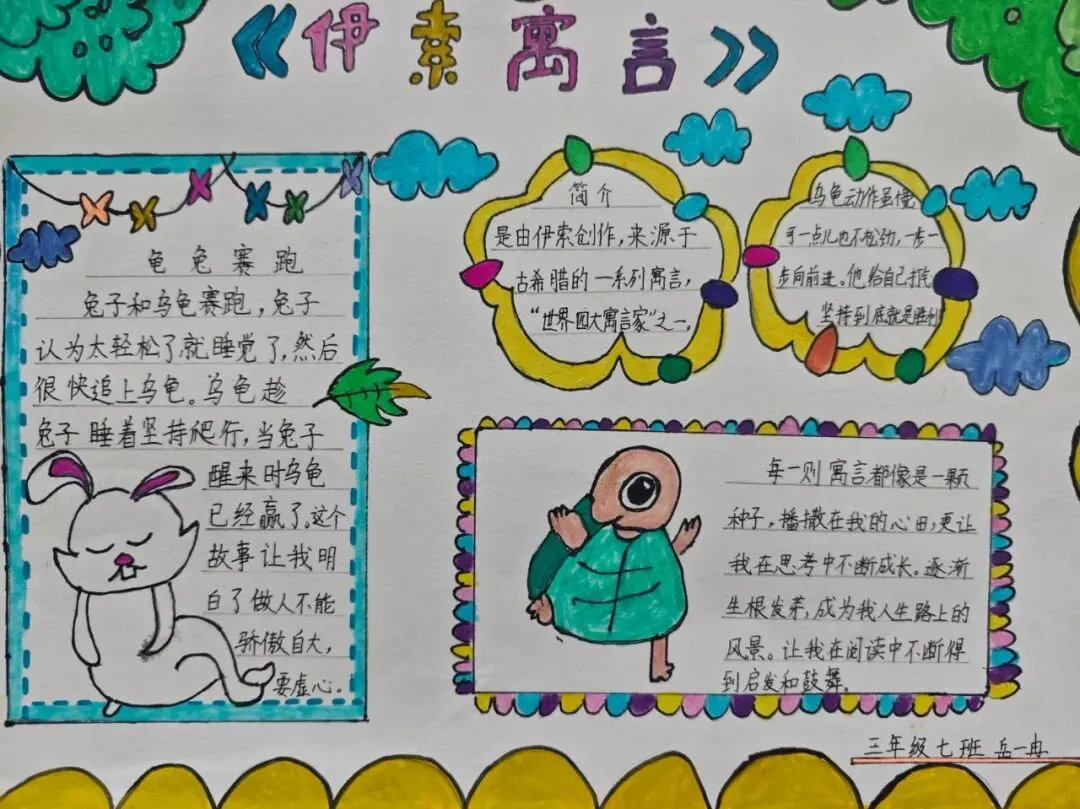 《伊索寓言》
龟兔赛跑
兔子和乌龟赛跑,兔子
认为太轻松了就睡觉了,然后
很快追上乌龟。乌龟趁
兔子睡着坚持爬行,当兔子
醒来时乌龟
已经赢了。这个
故事让我明
白了做人不能
骄傲自大,
要虚心。
简介
是由伊索创作,来源于
古希腊的一系列寓言,
“世界四大寓言家”之一。
乌龟动作虽慢
可一点儿也不松劲,一步一
步向前进。他给自己打气
坚持到底就是胜利
每一则寓言都像是一颗
种子,播撒在我的心田,更让
我在思考中不断成长。逐渐
生根发芽,成为我人生路上的
风景。让我在阅读中不断得
到启发和鼓舞。
三年级七班 岳一冉